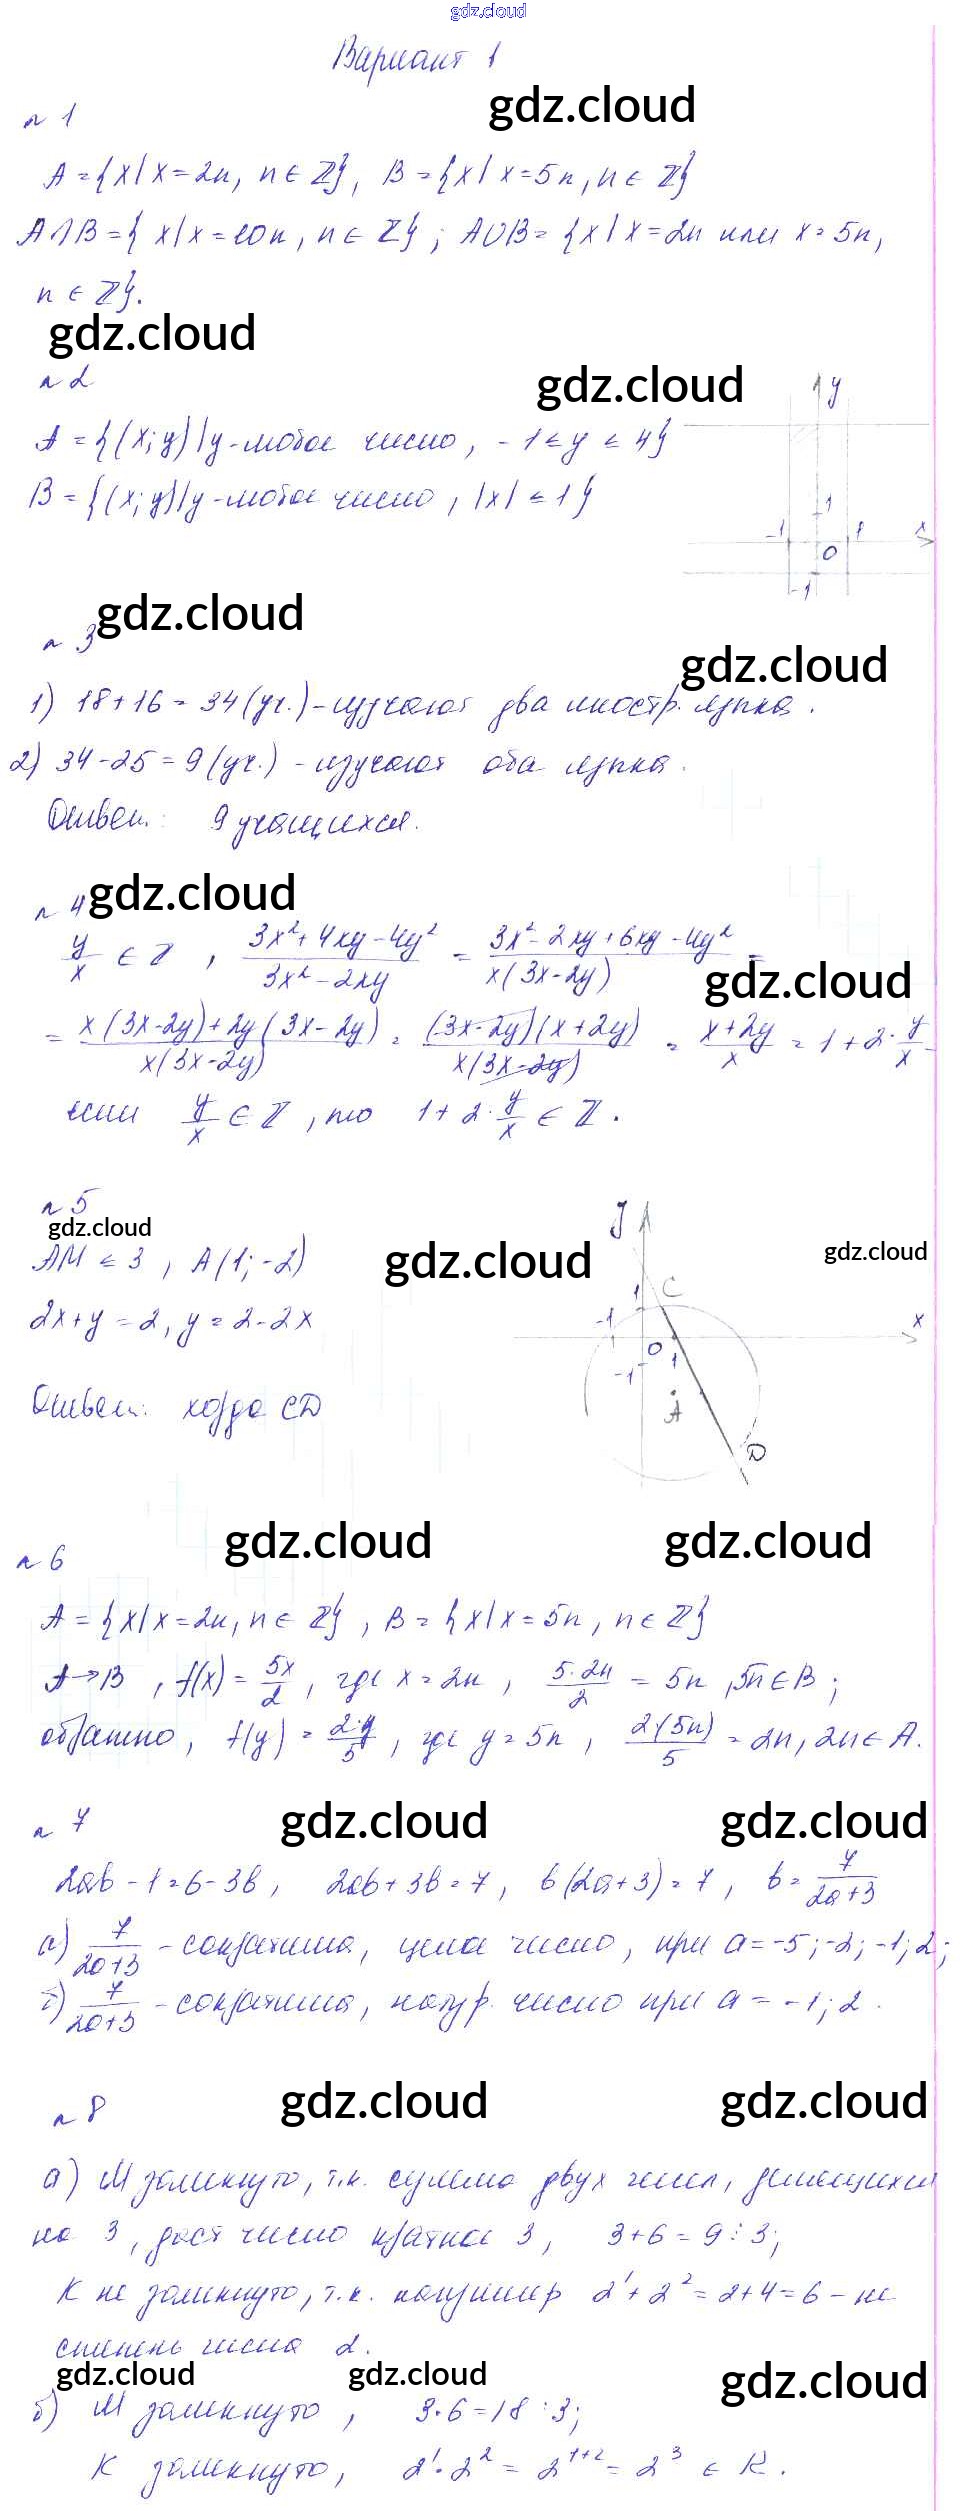 gdz.cloud
Вариант 1
gdz.cloud
n 1
A = {x | x = 2n, n ∈ ℤ}, B = {x | x = 5n, n ∈ ℤ}
A∩B = {x | x = 10n, n ∈ ℤ}; A∪B = {x | x = 2n или x = 5n,
n ∈ ℤ}.
gdz.cloud
n 2
gdz.cloud
y
A = {(x; y) | y - любое число, -1 ≤ y ≤ 4}
B = {(x; y) | y - любое число, |x| ≤ 1}
1
-1 1 x
0
-1
gdz.cloud
n 3
gdz.cloud
1) 18 + 16 = 34 (уч.) - изучают два иностр. языка.
2) 34 - 25 = 9 (уч.) - изучают оба языка.
Ответ: 9 учащихся.
n 4 gdz.cloud
y/x ∈ ℤ, (3x² + 4xy - 4y²)/(3x² - 2xy) = (3x² - 2xy + 6xy - 4y²)/(x(3x - 2y)) =
gdz.cloud
= (x(3x - 2y) + 2y(3x - 2y))/(x(3x - 2y)) = ((3x - 2y)(x + 2y))/(x(3x - 2y)) = (x + 2y)/x = 1 + 2 · y/x -
если y/x ∈ ℤ, то 1 + 2 · y/x ∈ ℤ.
n 5
gdz.cloud
y
AM ≤ 3, A(1; -2)
gdz.cloud
gdz.cloud
C
2x + y = 2, y = 2 - 2x
1
-1 x
0 1
-1
A
Ответ: хорда CD
D
gdz.cloud
gdz.cloud
n 6
A = {x | x = 2n, n ∈ ℤ}, B = {x | x = 5n, n ∈ ℤ}
A → B, f(x) = 5x/2, где x = 2n, (5·2n)/2 = 5n, 5n ∈ B;
обратно, f(y) = (2·y)/5, где y = 5n, (2·(5n))/5 = 2n, 2n ∈ A.
n 7
gdz.cloud
gdz.cloud
2ab - 1 = 6 - 3b, 2ab + 3b = 7, b(2a + 3) = 7, b = 7/(2a + 3)
а) 7/(2a + 3) - сократима, цела число, при a = -5; -2; -1; 2;
б) 7/(2a + 3) - сократима, натур. число при a = -1; 2.
n 8
gdz.cloud
gdz.cloud
а) M замкнуто, т.к. сумма двух чисел, делящихся
на 3, даст число кратное 3, 3 + 6 = 9 ⋮ 3;
K не замкнуто, т.к. например 2¹ + 2² = 2 + 4 = 6 - не
степень числа 2.
gdz.cloud
gdz.cloud
gdz.cloud
б) M замкнуто, 3·6 = 18 ⋮ 3;
K замкнуто, 2¹ · 2² = 2¹⁺² = 2³ ∈ K.